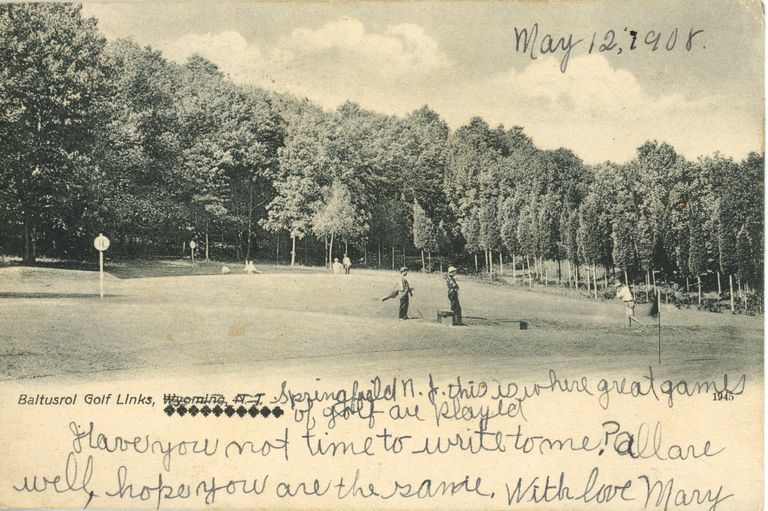 May 12, 1908.
11
Baltusrol Golf Links, Wyoming, N. J. Springfield N. J. this is where great games
1945
of golf are played
Have you not time to write to me? all are
well, hope you are the same. With love Mary